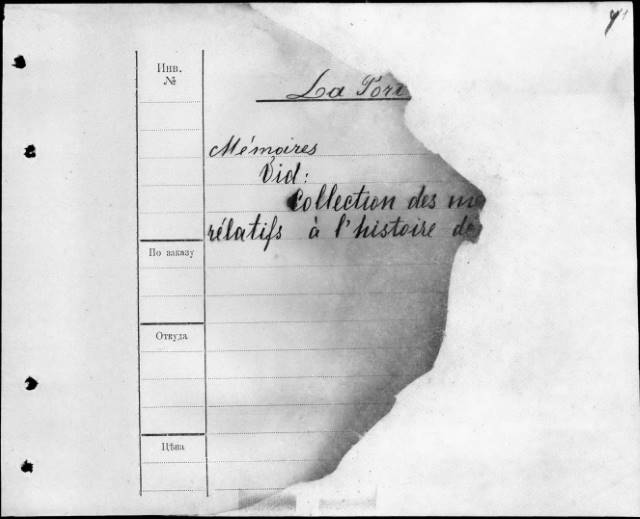 Инв.
№
La Por
Mémoires
Vid:
Collection des
rélatifs à l'histoire de
По заказу
Откуда
Цѣна